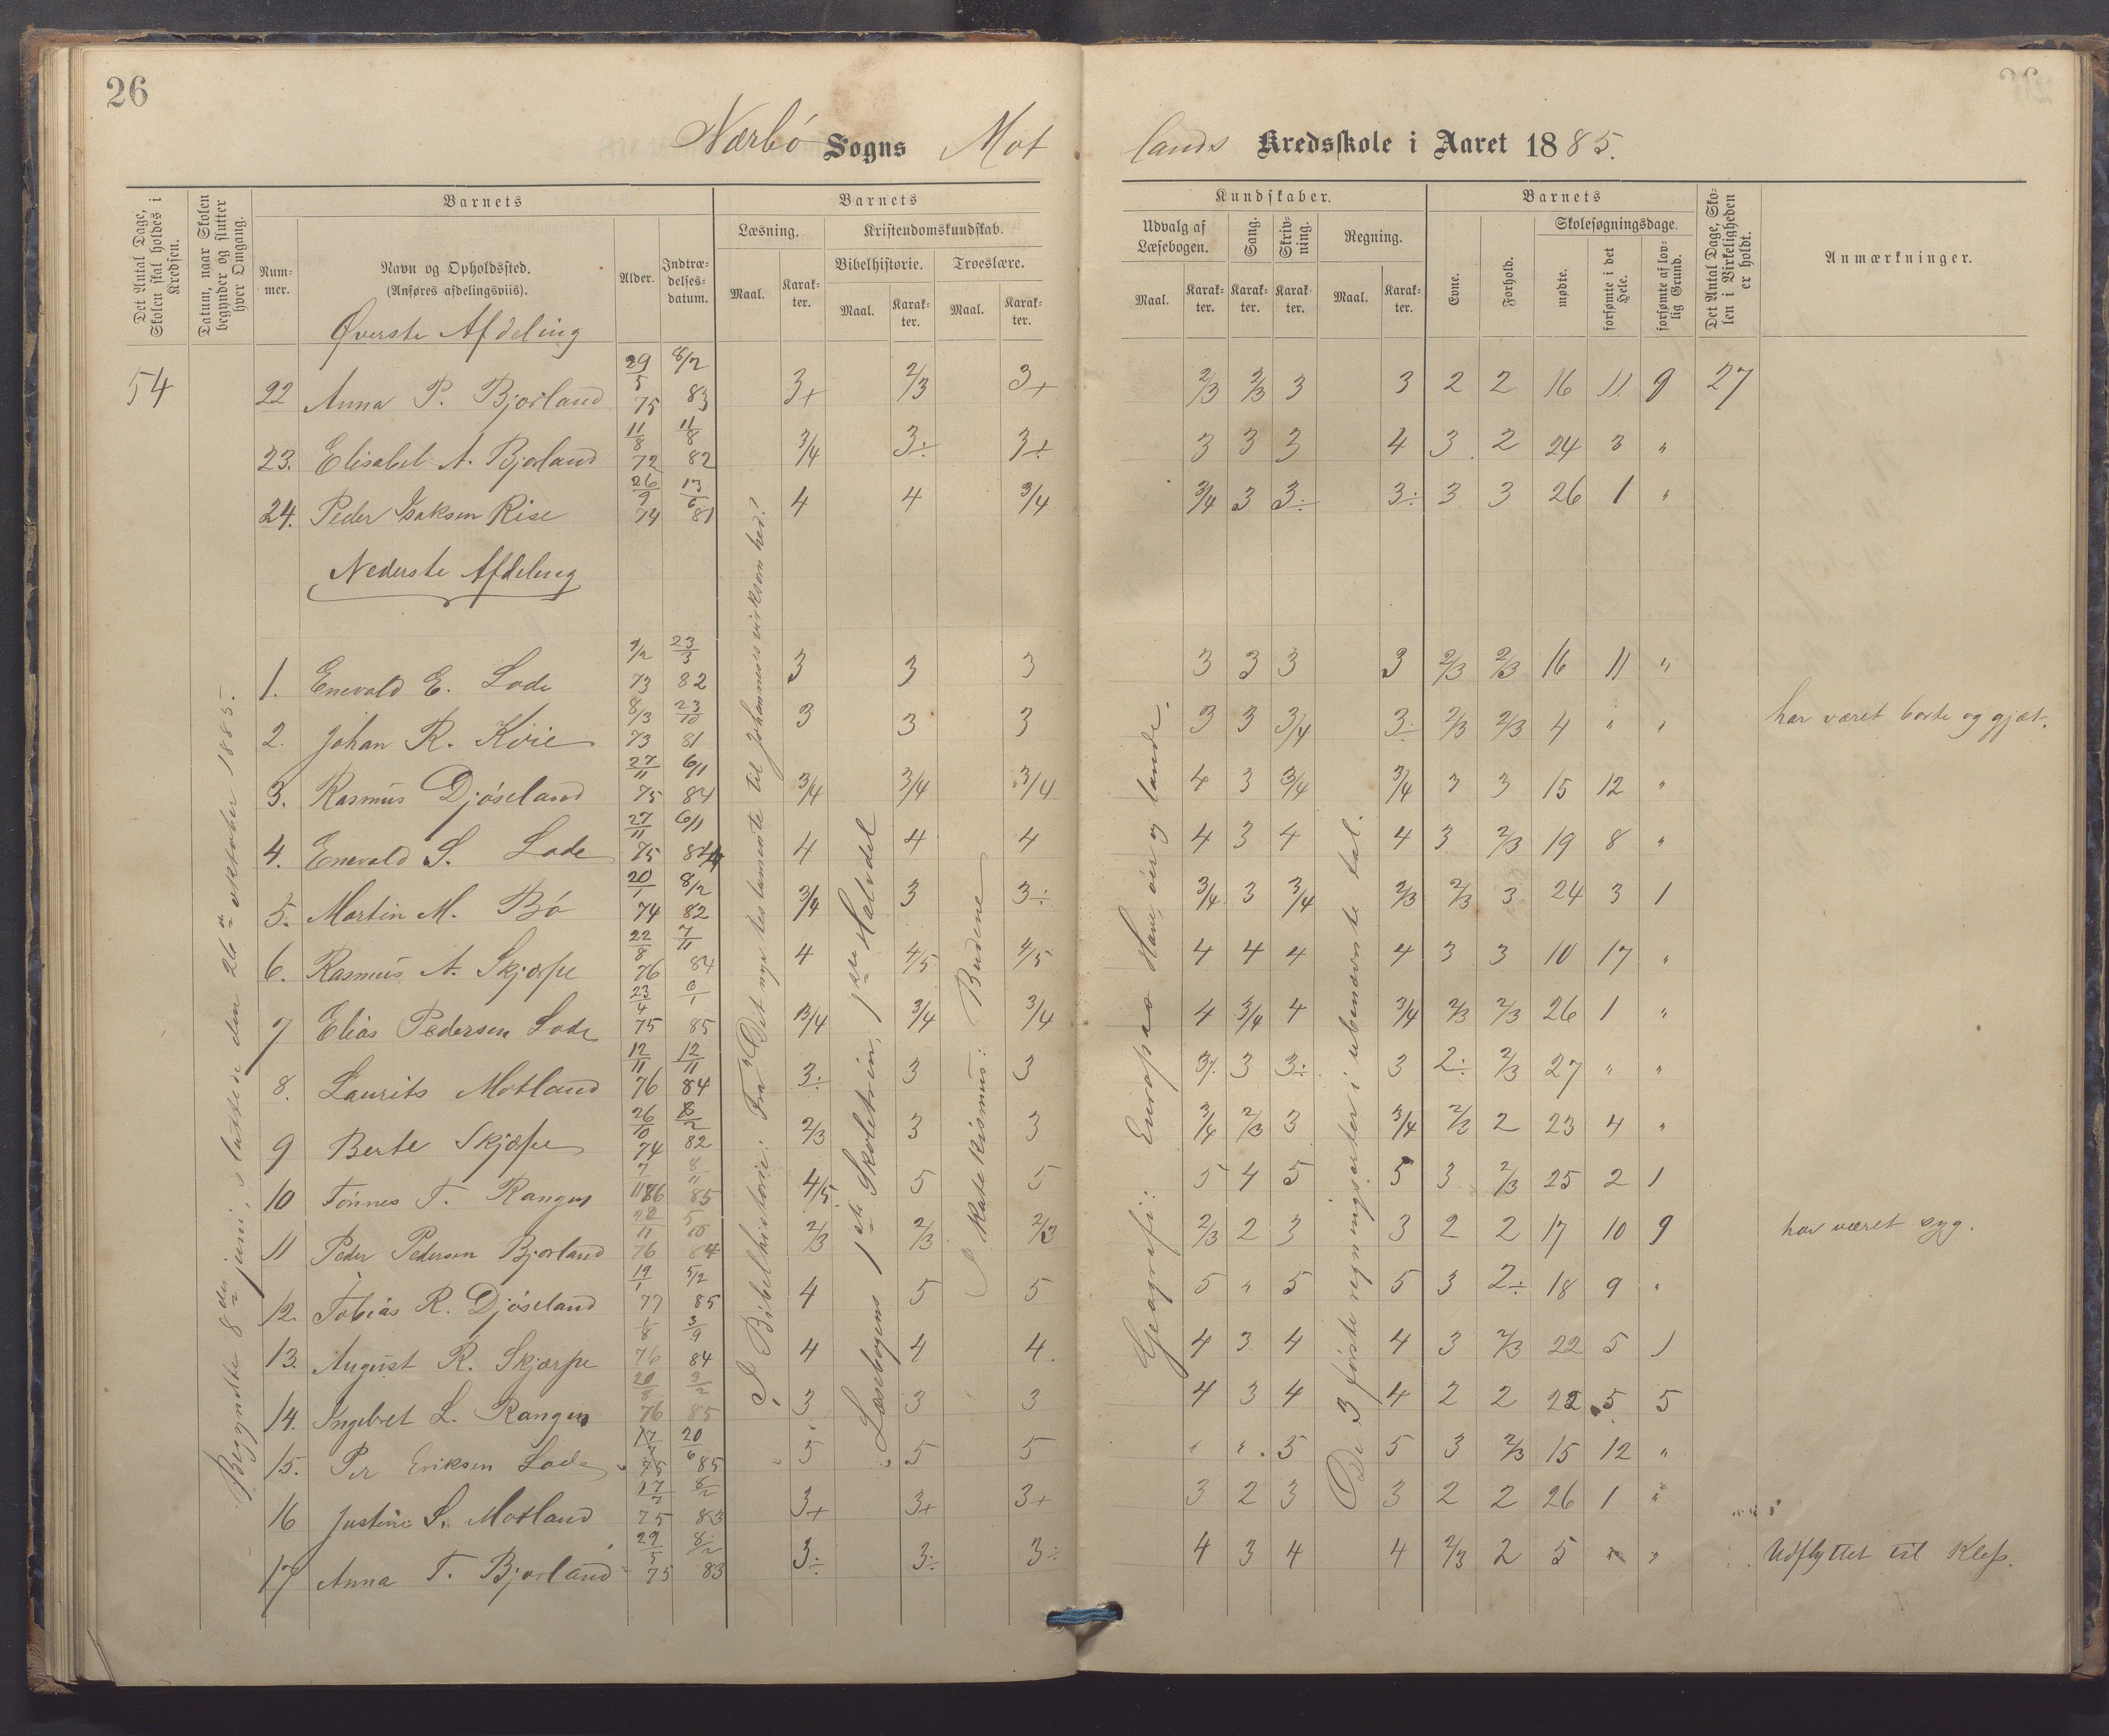 26
Nærbö Sogns Motlands Kredsskole i Aaret 1885.
Det Antal Dage, Skolen skal holdes i Kredsen.
Datum, naar Skolen begynder og slutter hver Omgang.
Barnets
Nummer.
Navn og Opholdssted.
(Anføres afdelingsviis).
Alder.
Indtrædelsesdatum.
Barnets
Læsning.
Maal.
Karakter.
Kristendomskundskab.
Bibelhistorie.
Maal.
Karakter.
Troeslære.
Maal.
Karakter.
Kundskaber.
Udvalg af Læsebogen.
Maal.
Karakter.
Sang.
Karakter.
Skrivning.
Karakter.
Regning.
Maal.
Karakter.
Barnets
Evne.
Forhold.
Skolesøgningsdage.
mødte.
forsømte i det Hele.
forsømte af lovlig Grund.
Det Antal Dage, Skolen i Virkeligheden er holdt.
Anmærkninger.
Øverste Afdeling
54 22 Anna P. Bjorland 29/5 75 8/2 83 3+ 2/3 3+ 2/3 2/3 3 3 2 2 16 11 9 27
23. Elisabet A. Bjorland 11/8 72 11/8 82 3/4 3÷ 3+ 3 3 3 4 3 2 24 3 "
24. Peder Isaksen Rise 26/9 74 13/6 81 4 4 3/4 3/4 3 3÷ 3÷ 3 3 26 1 "
Nederste Afdeling
1. Enevald E. Lode 9/2 73 23/3 82 3 3 3 3 3 3 3 2/3 2/3 16 11 "
2. Johan R. Kvie 8/3 73 23/10 81 3 3 3 3 3 3/4 3÷ 2/3 2/3 4 " " har været borte og gjæt.
3. Rasmus Djöseland 27/11 75 6/11 84 3/4 3/4 3/4 4 3 3/4 3/4 3 3 15 12 "
4. Enevald S. Lode 27/11 75 6/11 84 4 4 4 4 3 4 4 3 2/3 19 8 "
5. Martin M. Bö 20/1 74 8/2 82 3/4 3 3÷ 3/4 3 3/4 2/3 2/3 3 24 3 1
6. Rasmus A. Skjærpe 22/8 76 7/11 84 4 4/5 4/5 4 4 4 4 3 3 10 17 "
7 Elias Pedersen Lode 23/4 75 85 3/4 3/4 3/4 4 3/4 4 3/4 2/3 2/3 26 1 "
8. Laurits Motland 12/11 76 12/11 84 3÷ 3 3 3÷ 3 3÷ 3 2÷ 2/3 27 " "
9 Berte Skjæpe 26/10 74 8/2 82 2/3 3 3 3/4 2/3 3 3/4 2/3 2 23 4 "
10 Tönnes T. Rangen 7/11 76 8/11 85 4/5 5 5 5 4 5 5 3 2/3 25 2 1
11 Peder Pedersen Bjorland 28/11 76 5/10 84 2/3 2/3 2/3 2/3 2 3 3 2 2 17 10 9 har været syg.
12. Tobias R. Djöseland 19/1 77 5/12 85 4 5 5 5 " 5 5 3 2÷ 18 9 "
13. August R. Skjærpe 1/8 76 3/9 84 4 4 4. 4 3 4 4 3 2/3 22 5 1
14. Ingebret L. Rangen 20/8 76 3/2 85 3 3 3 4 3 4 4 2 2 22 5 5
15. Per Eriksen Lode 17/7 75 20/6 85 5 5 5 " " 5 5 3 2/3 15 12 "
16 Justine S. Motland 17/7 75 8/2 83 3+ 3+ 3+ 3 2 3 3 2 2 26 1 "
17 Anna T. Bjorland 29/5 75 8/2 83 3÷ 3÷ 3÷ 4 3 4 4 2/3 2 5 " " Udflyttet til Klep.
Begyndte 8de juni, sluttede den 26de oktober 1885.
I Bibelhistorie: Fra "Det nye testamente til Johannes virksomhed".
Læsebogens 1ste Skoletrin, 1ste Halvdel
I Katekismus: Budene
Geografi: Europas Have, öer og lande.
De 3 förste regningsarter i ubenævnte tal.